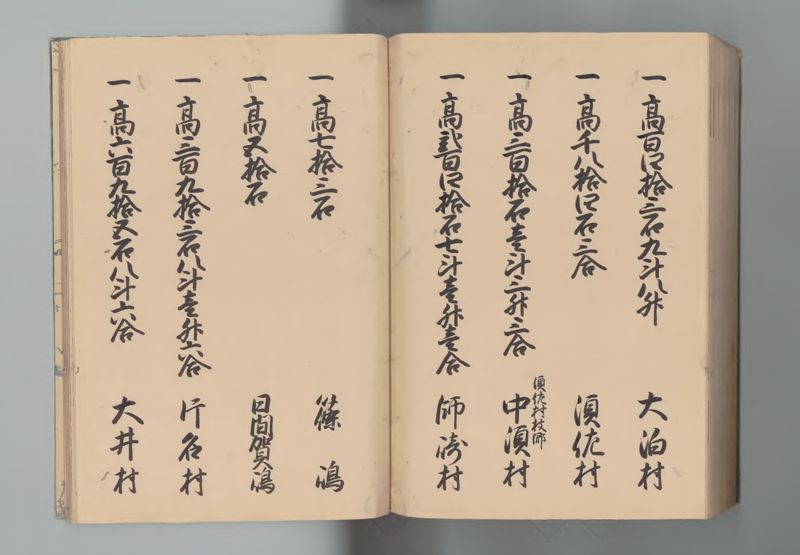 一高百四拾三石九斗八升 大泊村
一高千八拾四石三合 須佐村
一高三百拾石壱斗三升三合 須佐村枝郷 中須村
一高弐百四拾石七斗壱升壱合 師崎村
一高七拾三石 篠嶋
一高五拾石 日間賀嶋
一高三百九拾三石八斗壱升六合 片名村
一高六百九拾五石八斗六合 大井村